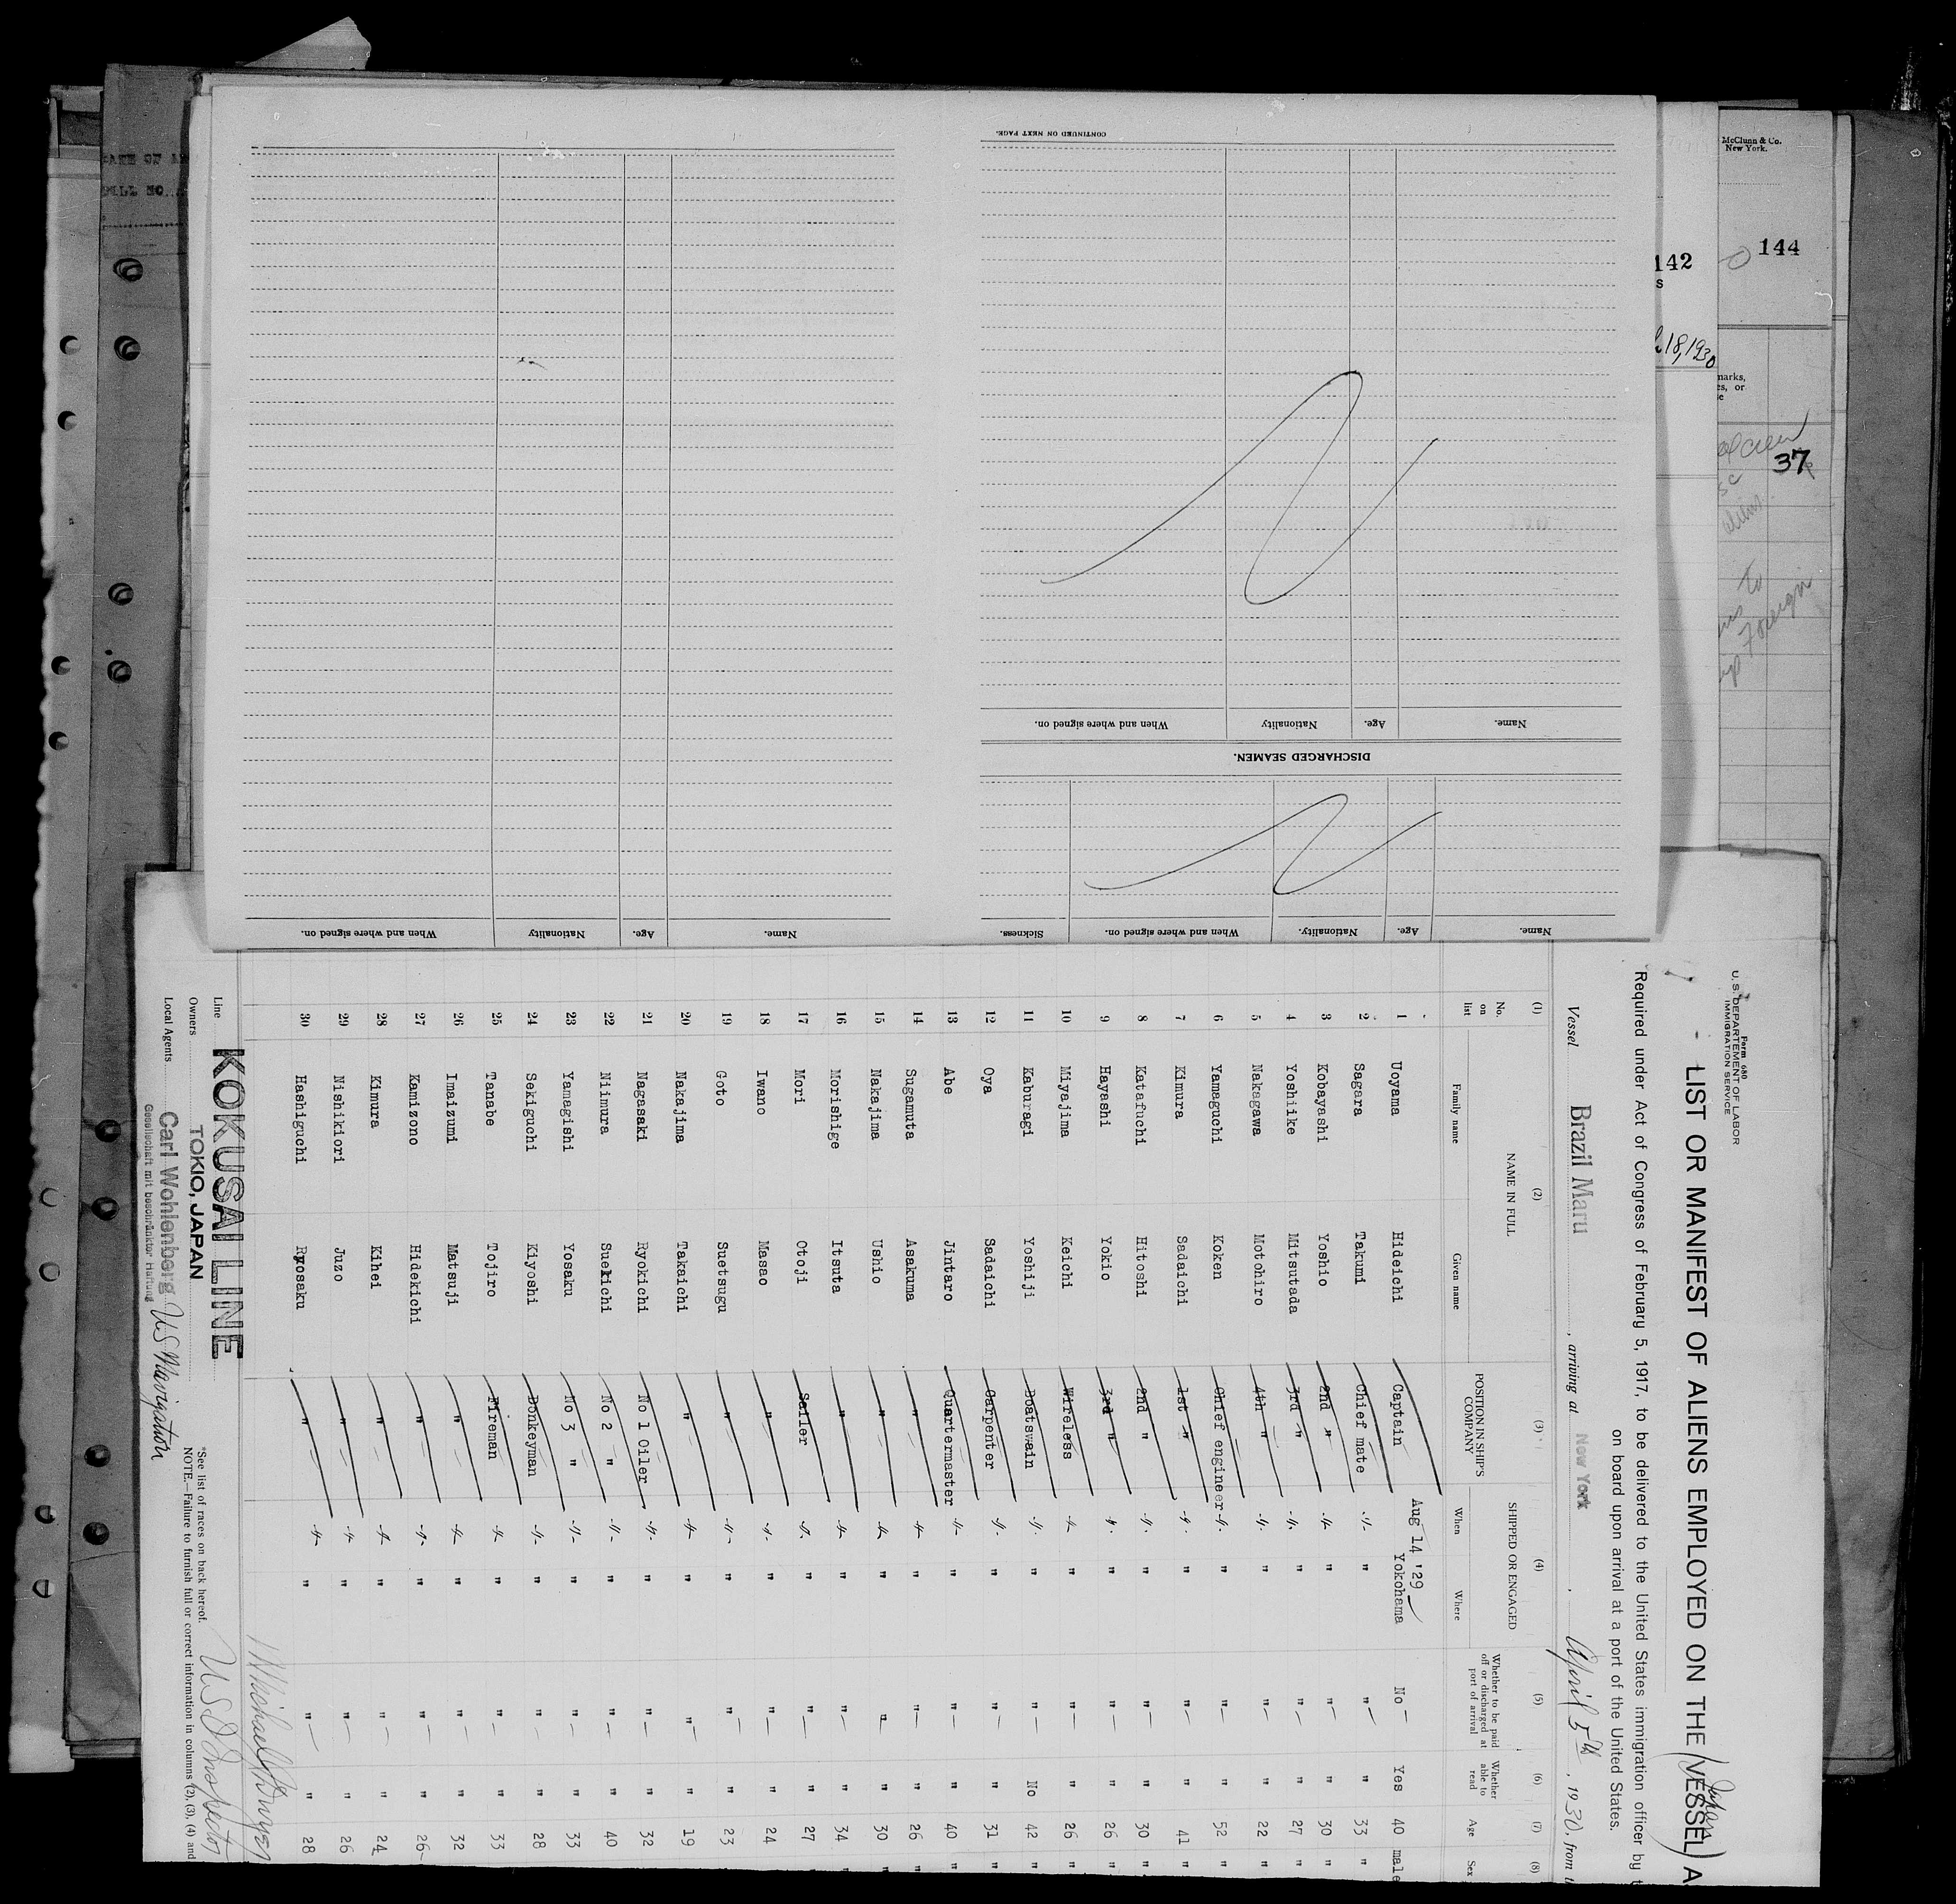 McClunn & Co.
New York.
144
142
18, 1930
37
to
Foreign
CONTINUED ON NEXT PAGE.
Name. Age. Nationality When and where signed on.
DISCHARGED SEAMEN.
Name. Age. Nationality. When and where signed on. Sickness.
Name. Age. Nationality When and where signed on.
Form 680
U. S. DEPARTEMENT OF LABOR
IMMIGRATION SERVICE
LIST OR MANIFEST OF ALIENS EMPLOYED ON THE (VESSEL) A
Japan
Required under Act of Congress of February 5, 1917, to be delivered to the United States immigration officer by t
on board upon arrival at a port of the United States.
Vessel Brazil Maru , arriving at New York , April 5th , 1930, from
(1) (2) (3) (4) (5) (6) (7) (8)
No. on list NAME IN FULL POSITION IN SHIP'S COMPANY SHIPPED OR ENGAGED Whether to be paid off or discharged at port of arrival Whether able to read Age Sex
Family name Given name When Where
1 Uoyama Hideichi Captain Aug 14 '29 Yokohama No Yes 40 male
2 Sagara Takumi Chief mate -"- " " " 33 "
3 Kobayashi Yoshio 2nd " -"- " " " 30 "
4 Yoshiike Mitsutada 3rd " -"- " " " 27 "
5 Nakagawa Motohiro 4th " -"- " " " 22 "
6 Yamaguchi Koken Chief engineer -"- " " " 52 "
7 Kimura Sadaichi 1st " -"- " " " 41 "
8 Katafuchi Hitoshi 2nd " -"- " " " 30 "
9 Hayashi Yokio 3rd " -"- " " " 26 "
10 Miyajima Keichi Wireless -"- " " " 26 "
11 Kaburagi Yoshiji Boatswain -"- " " No 42 "
12 Oya Sadaichi Carpenter -"- " " " 31 "
13 Abe Jintaro Quartermaster -"- " " " 40 "
14 Sugamuta Asakuma " -"- " " " 26 "
15 Nakajima Ushio " -"- " " " 30 "
16 Morishige Itsuta " -"- " " " 34 "
17 Mori Otoji Sailer -"- " " " 27
18 Iwano Masao " -"- " " " 24
19 Goto Suetsugu " -"- " " " 23
20 Nakajima Takaichi " -"- " " " 19
21 Nagasaki Ryokichi No 1 Oiler -"- " " " 32
22 Niimura Suekichi No 2 " -"- " " " 40
23 Yamagishi Yosaku No 3 " -"- " " " 33
24 Sekiguchi Kiyoshi Donkeyman -"- " " " 28
25 Tanabe Tojiro Fireman -"- " " " 33
26 Imaizumi Matsuji " -"- " " " 32
27 Kamizono Hidekichi " -"- " " " 26
28 Kimura Kihei " -"- " " " 24
29 Nishikiori Juzo " -"- " " " 26
30 Hashiguchi Ryosaku " -"- " " " 28
Line KOKUSAI LINE
Owners TOKIO, JAPAN
Local Agents Carl Wohlenberg US Navigation
Gesellschaft mit beschränkter Haftung
*See list of races on back hereof.
NOTE.—Failure to furnish full or correct information in columns (2), (3), (4) and
US Inspector